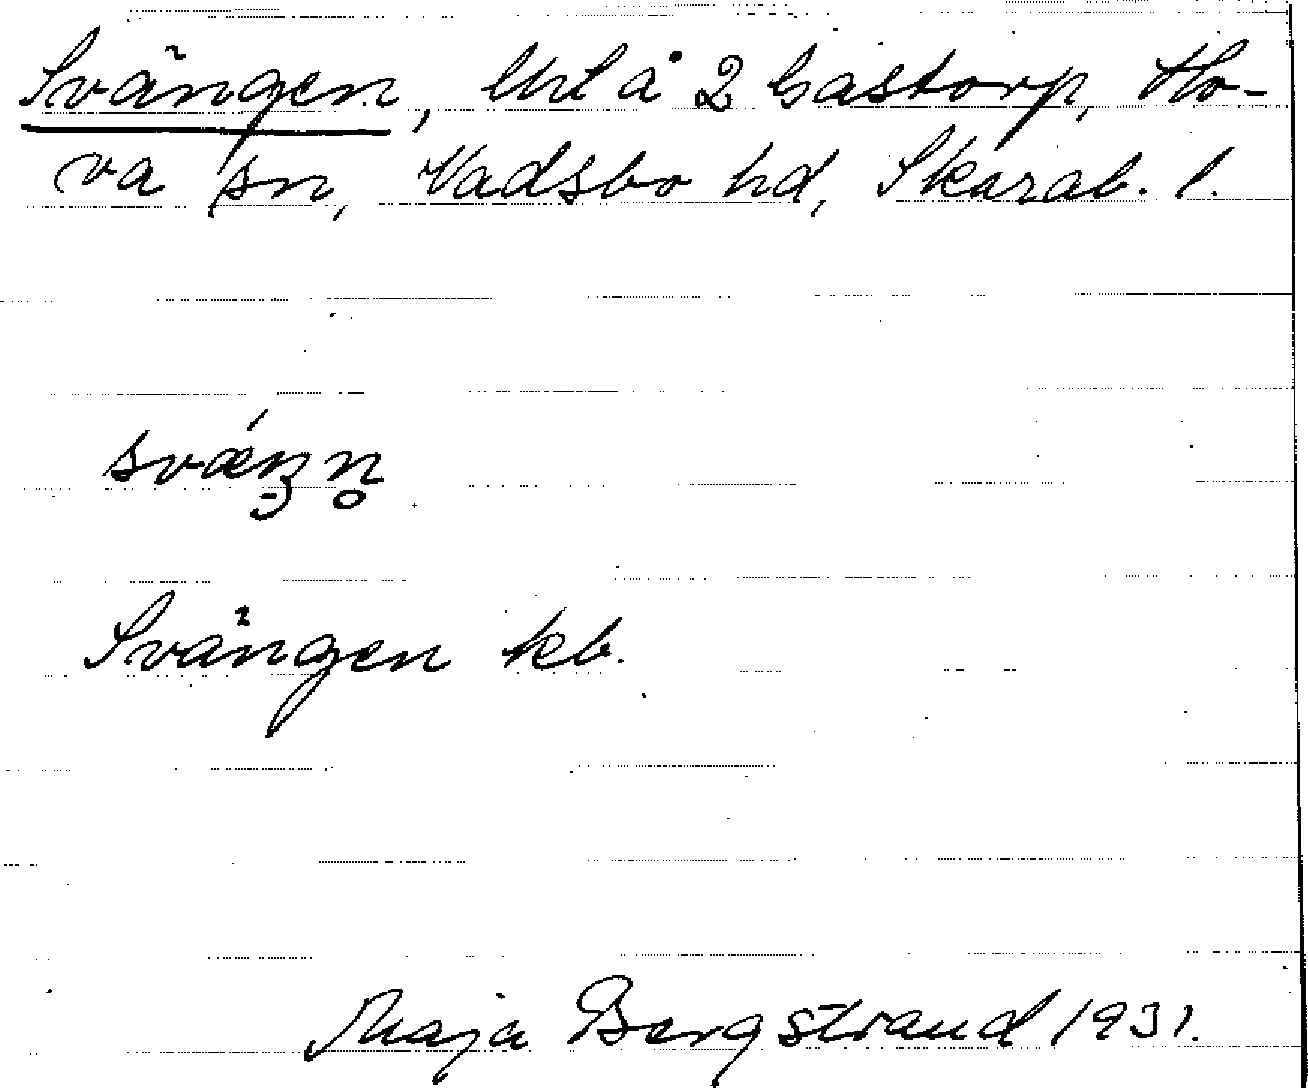 Svängen, lht å 2 Gastorp, Ho-
va sn, Vadsbo hd, Skarab. l.
svǽŋn̥
Svängen kb.
Maja Bergstrand 1931.